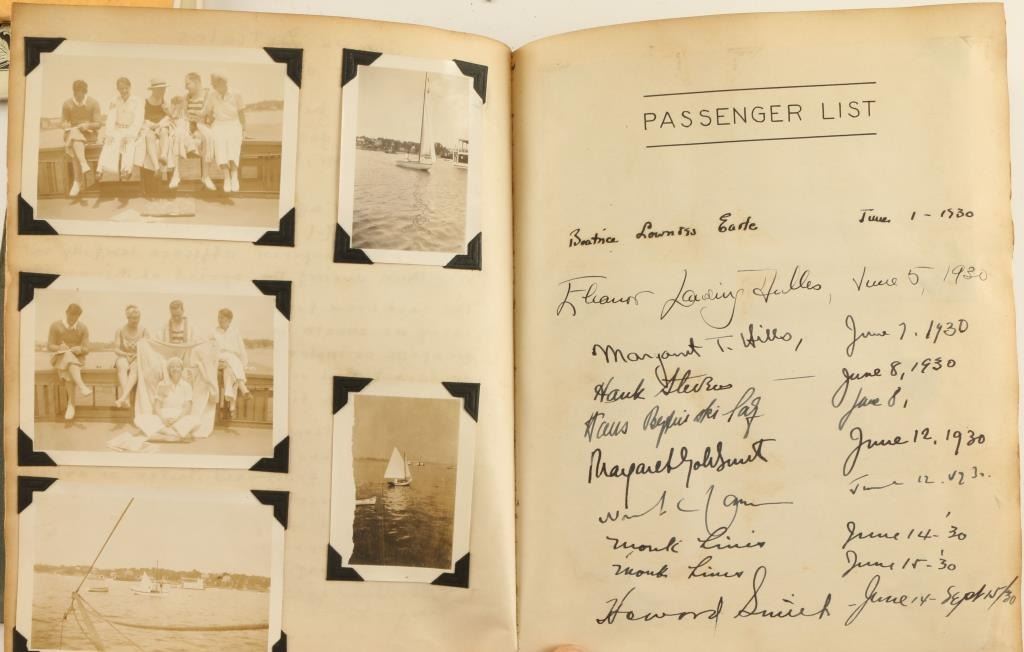 PASSENGER LIST
Beatrice Lowndes Earle June 1 - 1930
Eleanor Lansing Dulles, June 5, 1930
Margaret T. Hills, June 7, 1930
Hank Stevens — June 8, 1930
Hans June 8,
Margaret Goldsmit June 12, 1930
June 12.
Monk June 14-'30
Monk June 15-'30
Howard Smith - June 14 - Sept 15/30